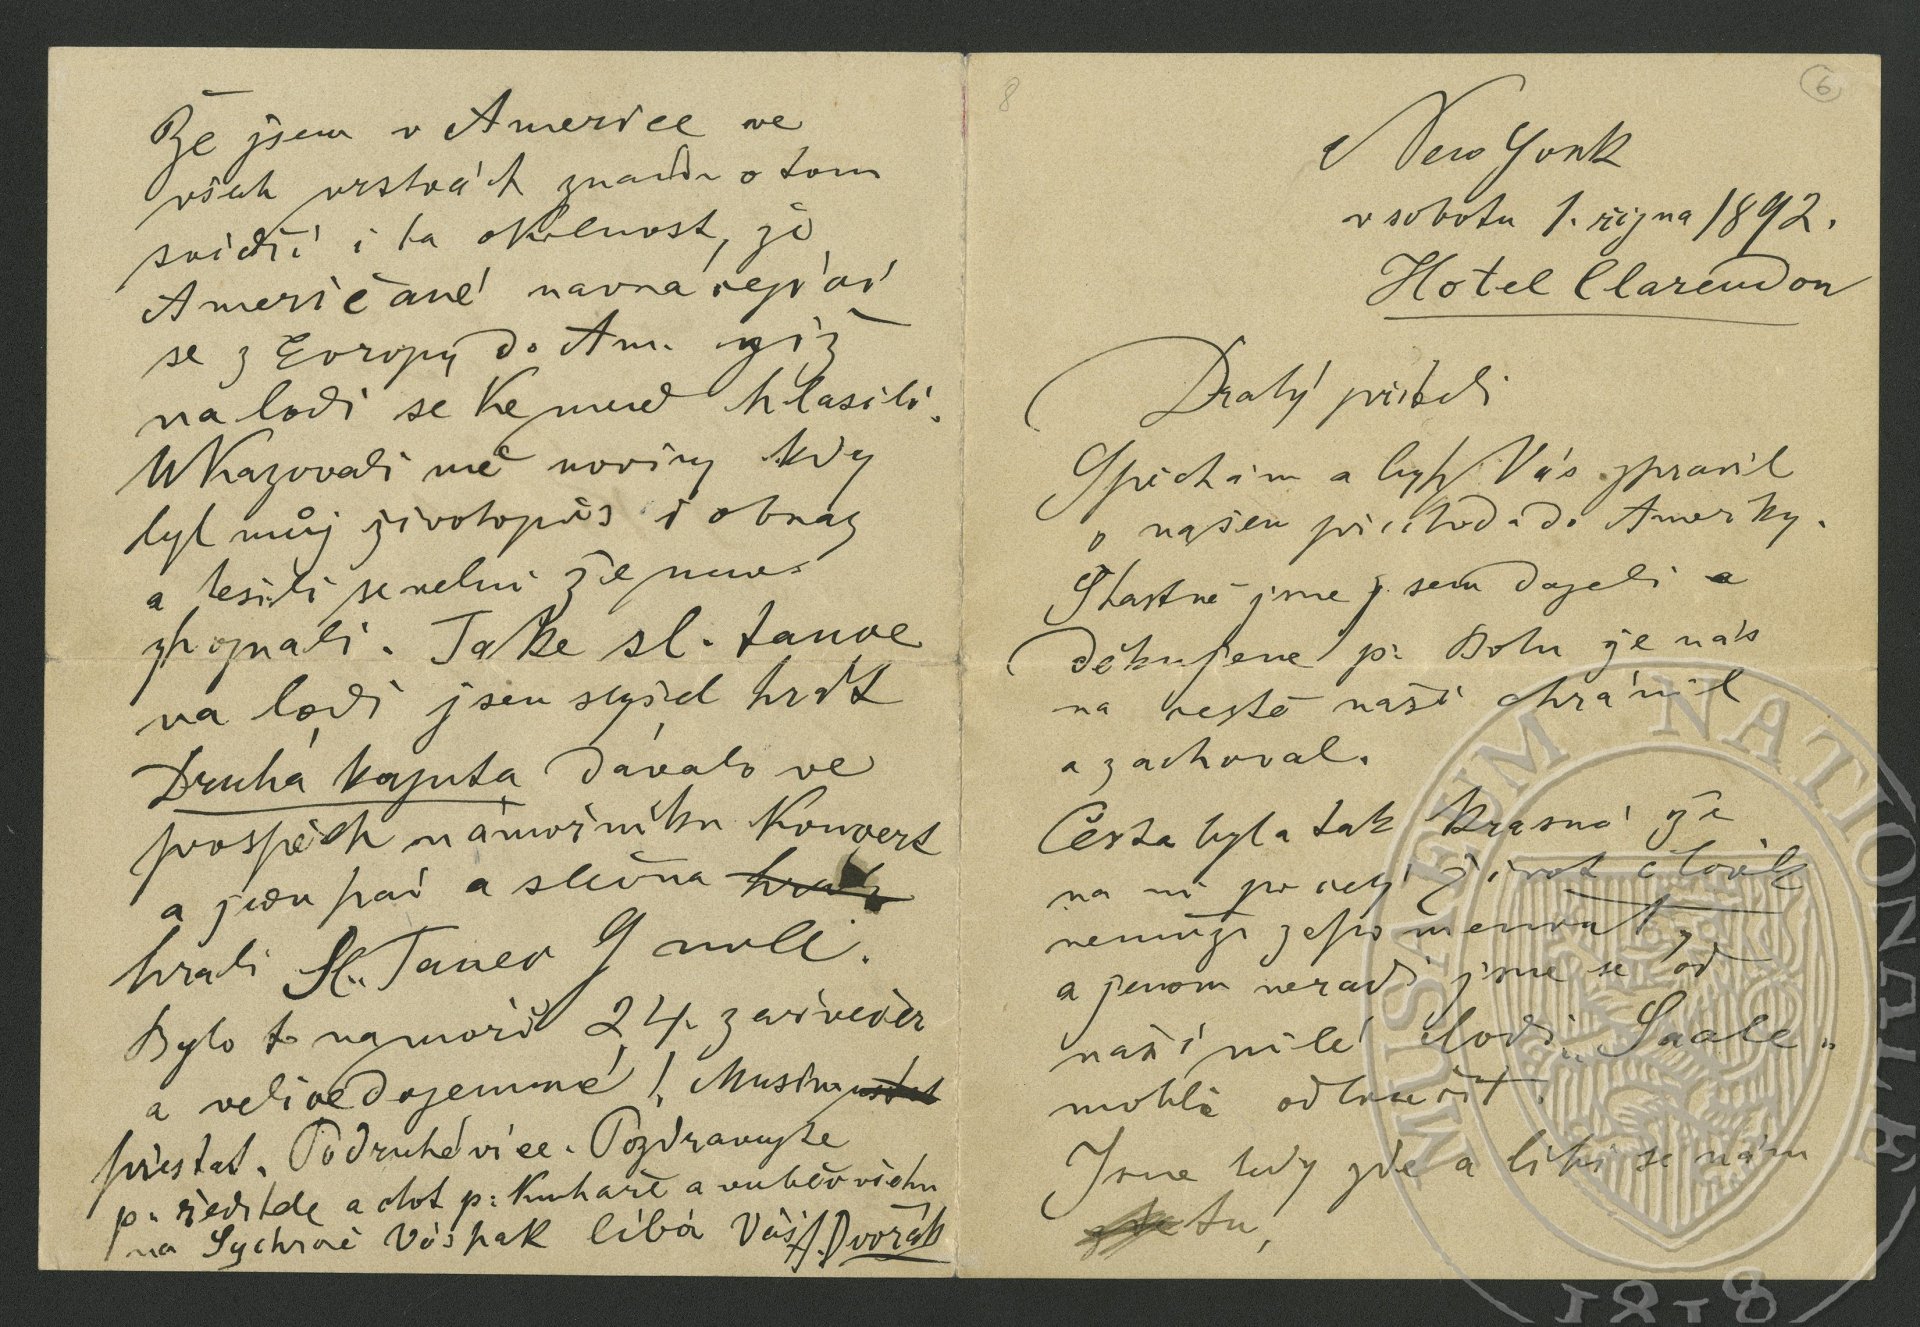 6
8
New York
v sobotu 1. října 1892.
Hotel Clarendon
Drahý příteli
Spěchám a bych Vás zpravil
o našem příchodu do Ameriky.
Šťastně jsme j. sem dojeli a
děkujeme p. Bohu že nás
na cestě naší chránil
a zachoval.
Cesta byla tak krásná že
na ni po celý život člověk
nemůže zapomenout
a jenom neradi jsme se od
naší milé lodi „Saale"
mohli odloučit.
Jsme tedy zde a líbí se nám
tu,
Že jsem v Americe ve
všech vrstvách znám o tom
svědčí i ta okolnost, že
Američané navracející
se z Evropy do Am. již
na lodi se ke mně hlásili.
Ukazovali mě noviny kdy
byl můj životopis i obraz
a těšili se velmi že mne
poznali. Take sl. tance
na lodi jsem slyšel hrát
Druhá kajuta dávala ve
prospěch námořníku koncert
a jeden pán a slečna hráli
hráli Sl. Tanec G moll.
Bylo to na moři 24. září večer
a velice dojemné! Musím
přestat. Podruhé více. Pozdravujte
p. ředitele a ct p. Kuchaře a vůbec všechny
na Sychrově Vás pak líbá Váš A. Dvořák
MUSAEUM NATIONALE
1818